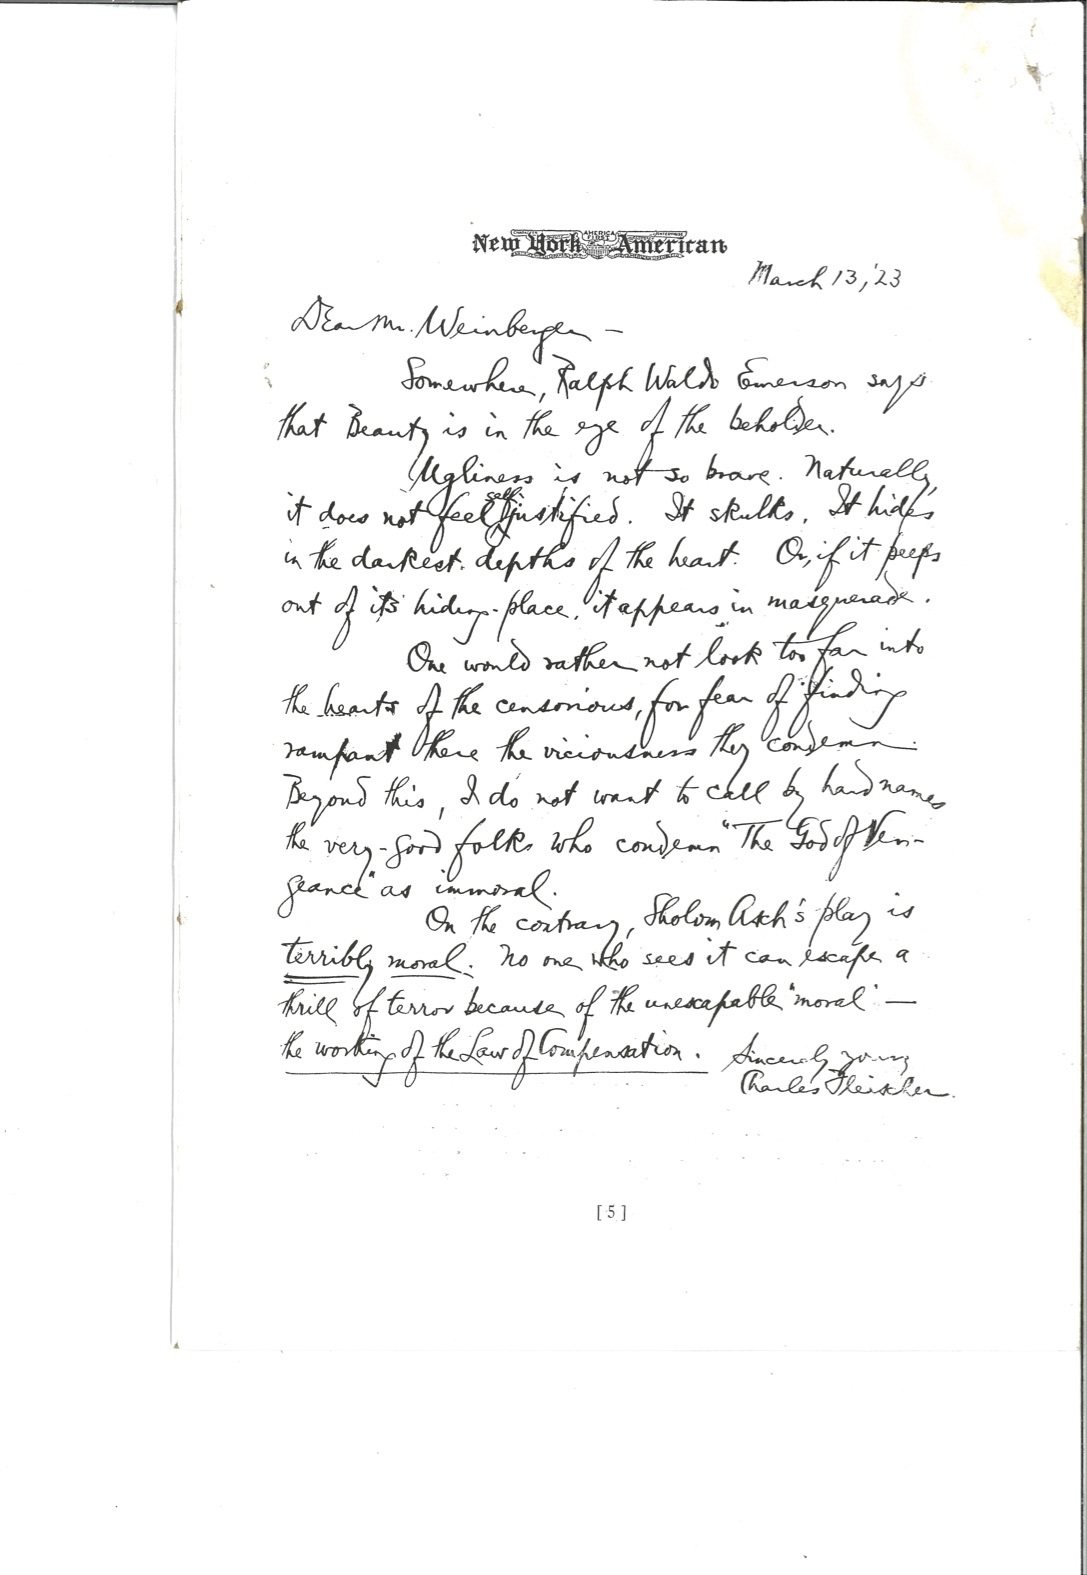 New York American
AMERICA FIRST
March 13, '23
Dear Mr. Weinberger –
Somewhere, Ralph Waldo Emerson says
that Beauty is in the eye of the beholder.
Ugliness is not so brave. Naturally,
it does not feel self justified. It skulks. It hides
in the darkest depths of the heart. Or, if it peeps
out of its hiding-place, it appears in masquerade.
One would rather not look too far into
the hearts of the censorious, for fear of finding
rampant there the viciousness they condemn.
Beyond this, I do not want to call by hard names
the very-good folks who condemn "The God of Ven-
geance" as immoral.
On the contrary, Sholom Asch's play is
terribly moral. No one who sees it can escape a
thrill of terror because of the unescapable "moral" —
the working of the Law of Compensation.
Sincerely yours,
Charles Fleischer.
[5]